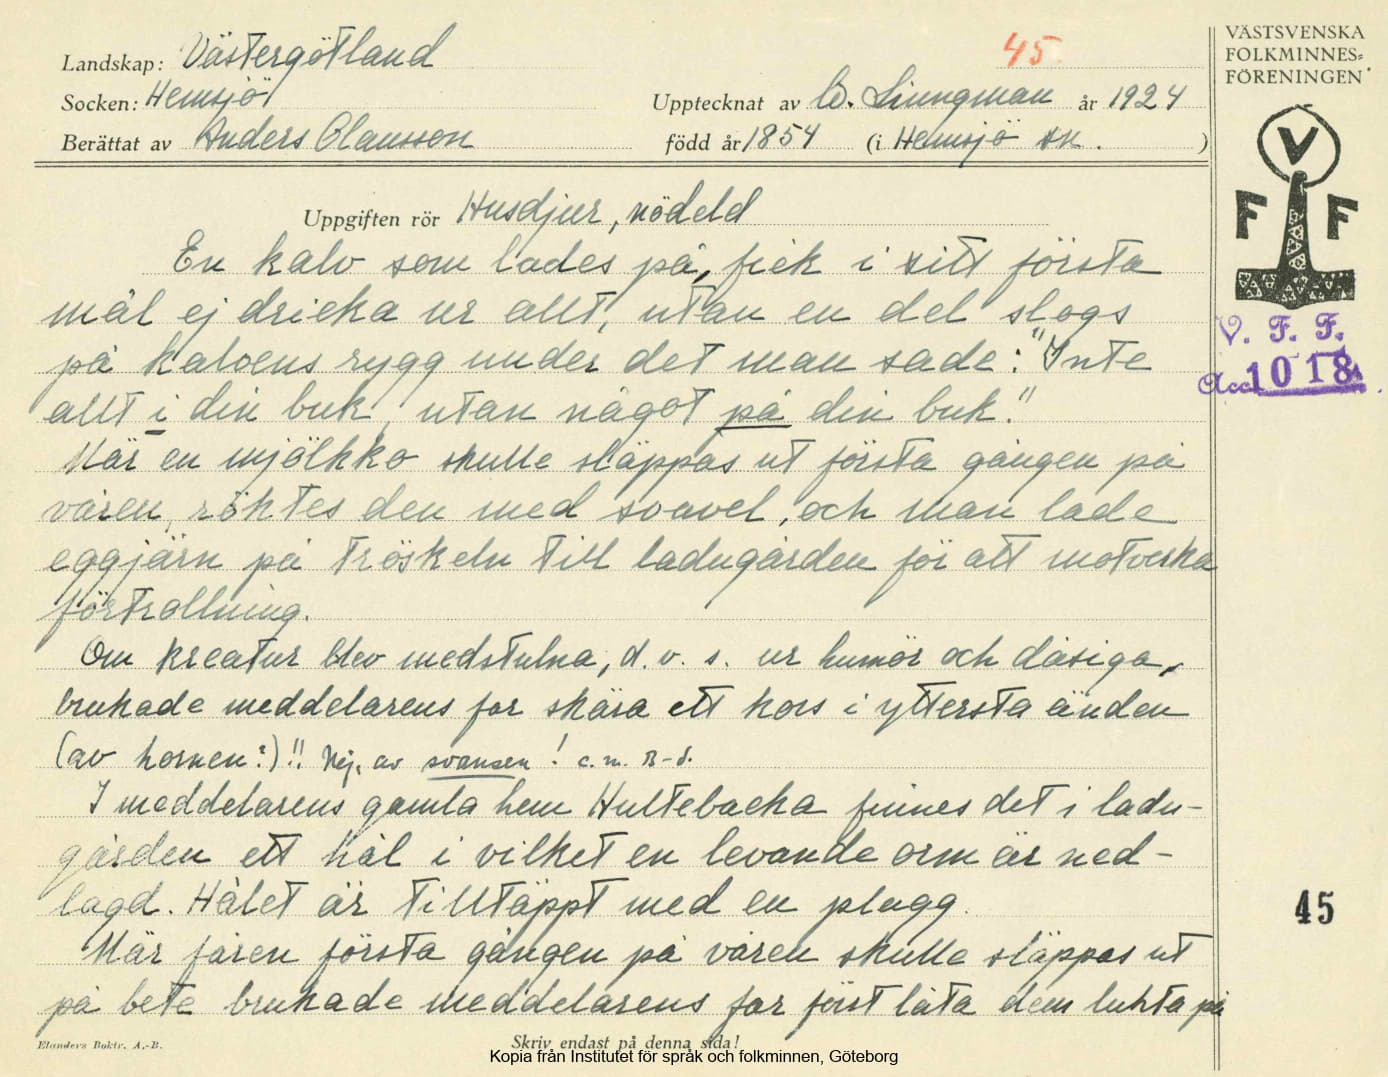 Landskap: Västergötland
45.
Socken: Hemsjö
Upptecknat av W. Liungman år 1924
Berättat av Anders Olausson
född år 1854 (i Hemsjö sn. )
VÄSTSVENSKA
FOLKMINNES=
FÖRENINGEN
V
F F
V. F. F.
Acc. 1018
Uppgiften rör Husdjur, nödeld
En kalv som lades på, fick i sitt första
mål ej dricka ur allt, utan en del slogs
på kalvens rygg under det man sade: "Inte
allt i din buk, utan något på din buk."
När en mjölkko skulle släppas ut första gången på
våren, röktes den med svavel, och man lade
eggjärn på tröskeln till ladugården för att motverka
förtrollning.
Om kreatur blev medstulna, d. v. s. ur humör och dåsiga,
brukade meddelarens far skära ett kors i yttersta änden
(av hornen?)!! Nej, av svansen! c. m. B-d.
I meddelarens gamla hem Hultebacka finnes det i ladu-
gården ett hål i vilket en levande orm är ned-
lagd. Hålet är tilltäppt med en plugg.
När fåren första gången på våren skulle släppas ut
på bete brukade meddelarens far först låta dem lukta på
45
Elanders Boktr. A.-B.
Skriv endast på denna sida!
Kopia från Institutet för språk och folkminnen, Göteborg